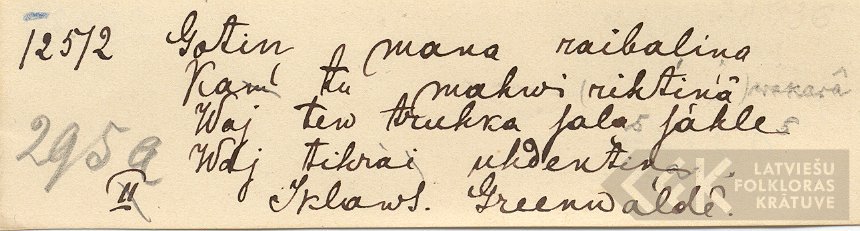 12572 Gotin mana raibalina
Kam tu mahwi (rihtinâ) wakarâ
Waj tew truhka salas sahles
295a Waj tihrai uhdentina
II Iklawf. Greenwâldê.
LATVIEŠU
FOLKLORAS
KRĀTUVE